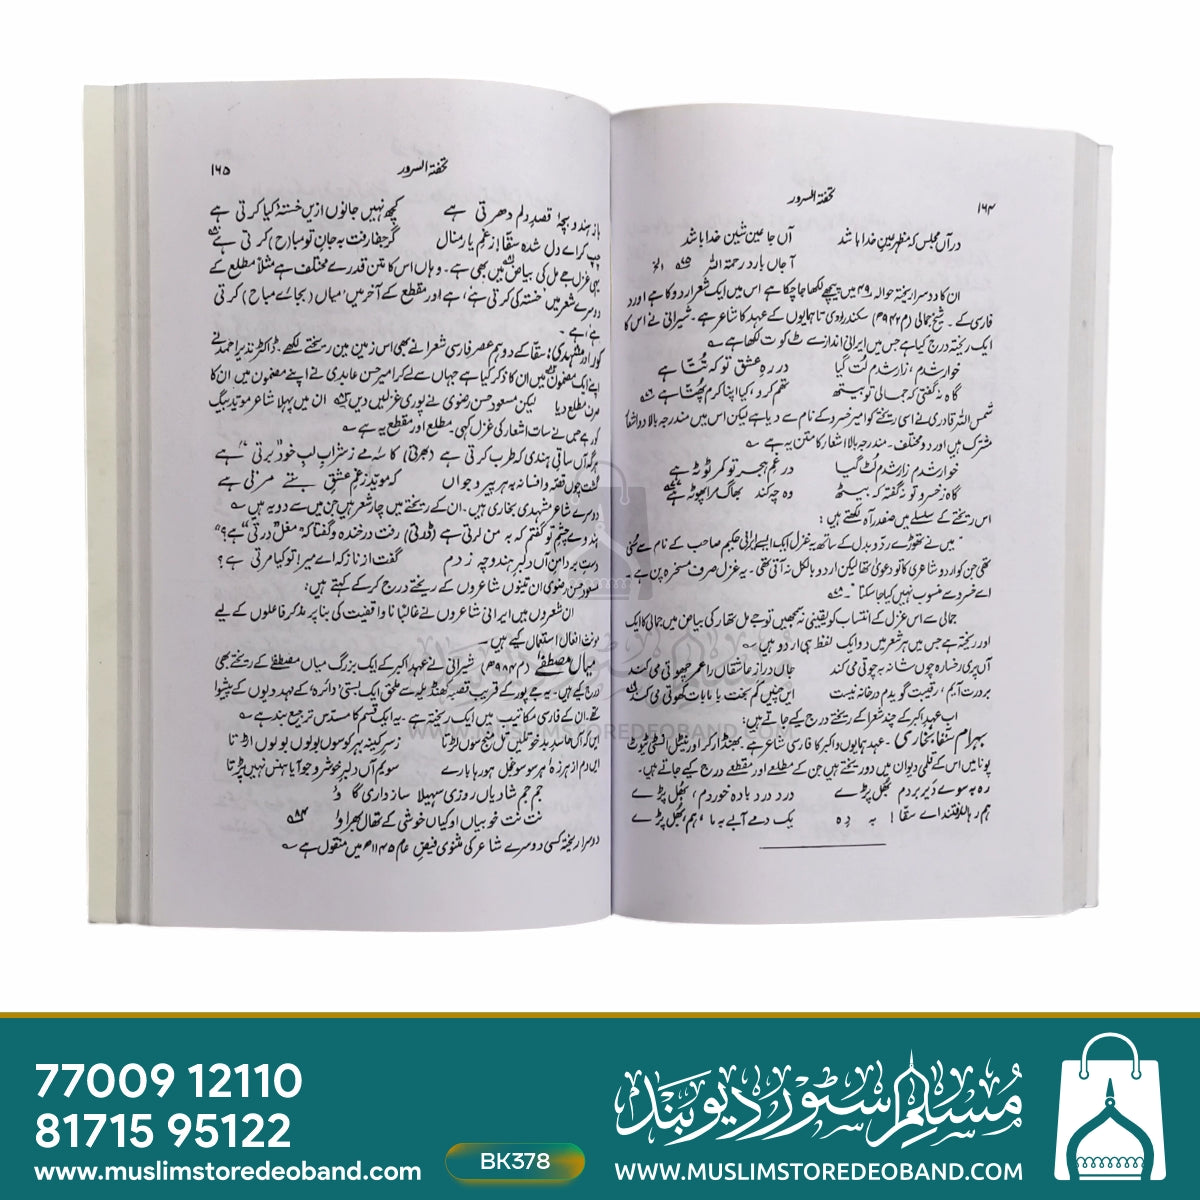 ۱۶۴
تحفۃ السرور
در آں مجلس کہ منظر عینِ خدا باشد آں جا عین شین خدا باشد
آ جاں بارد رحمۃ اللہ الخ
ان کا دوسرا ریختہ حوالہ ۴۹ میں پیچھے لکھا جا چکا ہے اس میں ایک شعر اردو کا ہے اور دو
فارسی کے۔ شیخ جمالی (م ۹۴۲ھ) سکندر لودی تا ہمایوں کے عہد کا شاعر ہے۔ شیرانی نے اس کا
ایک ریختہ درج کیا ہے جس میں ایرانی انداز سے ٹ کو ت لکھا ہے
خوار شدم، زار شدم لُت گیا در رہِ عشق تو کمر تُتا ہے
گاہ نہ گفتی کہ جمالی تو بیتھ تم کرد، کیا اپنا کرم پھُتا ہے
شمس اللہ قادری نے اسی ریختے کو امیر خسرو کے نام سے دیا ہے لیکن اس میں مندرجہ بالا دو اشعار
مشترک ہیں اور دو مختلف۔ مندرجہ بالا اشعار کا متن یہ ہے
خوار شدم زار شدم لُٹ گیا در غمِ ہجر تو کمر ٹوٹ ہے
گاہ ز خسرو تو نہ گفتہ کہ بیٹھ وہ چہ کند بھاگ مرا پھوڑ ہے
اس ریختے کے سلسلے میں صفدر آہ لکھتے ہیں:
میں نے تھوڑے رد و بدل کے ساتھ یہ غزل ایک ایسے ایرانی حکیم صاحب کے نام سے سنی
تھی جن کو اردو شاعری کا تو دعویٰ تھا لیکن اردو بالکل نہ آتی تھی۔ یہ غزل صرف مسخرہ پن ہے
اسے خسرو سے منسوب نہیں کیا جا سکتا"۔
جمالی سے اس غزل کے انتساب کو یقینی نہ سمجھیں تو جے مل تھار کی بیاض میں جمالی کا ایک
اور ریختہ ہے جس میں ہر شعر میں دو ایک لفظ ہی اردو ہیں
آں پری رخسارہ چوں شانہ بہ چوتی می کند جاں دراز عاشقاں را عمر چھوتی می کند
بر درت آیم، رقیبت گویدم در خانہ نیست ایں چنیں کم بخت با ما بات کھوتی می کند
اب عہدِ اکبر کے چند شعرا کے ریختے درج کیے جاتے ہیں:
بہرام سقّا بخاری۔ عہدِ ہمایوں و اکبر کا فارسی شاعر ہے۔ بھنڈارکر اورینٹل انسٹی ٹیوٹ
پونا میں اس کے قلمی دیوان میں دو ریختے ہیں جن کے مطلعے اور مقطعے درج کیے جاتے ہیں۔
رہ بہ سوے دَیر بردم بھُل پڑے درد درد بادہ خوردم، بھُل پڑے
ہم رہاں رفتند اے سقّا! بہ دِہ یک دمے آبے بہ ما، ہم، بھُل پڑے
تحفۃ السرور
۱۶۵
باز ہندو بچہ قصدِ دلم دھرتی ہے کچھ نہیں جانوں ازیں خستہ کیا کرتی ہے
چپ کر اے دل شدہ سقّا! ز غمِ یار منال گر جفا رفت بہ جانِ تو مبا(ح) کرتی ہے
یہی غزل جے مل کی بیاض میں بھی ہے۔ وہاں اس کا متن قدرے مختلف ہے مثلاً مطلع کے
دوسرے شعر میں 'خستہ کی کرتی ہے، ہے اور مقطع کے آخر میں 'میاں (بجائے مباح) کرتی
ہے، ہے۔
گور اور مشہدی: سقّا کے دو ہم عصر فارسی شعرا نے بھی اس زمین میں ریختے لکھے۔ ڈاکٹر نذیر احمد نے
اپنے ایک مضمون میں ان کا ذکر کیا ہے جہاں سے لے کر امیر حسن عابدی نے اپنے مضمون میں ان کا
صرف مطلع دیا لیکن مسعود حسن رضوی نے پوری غزلیں دیں ان میں پہلا شاعر موتید بیگ
گور ہے جس نے سات اشعار کی غزل کہی۔ مطلع اور مقطع یہ ہے
ہر گہ آں ساقیِ ہندی کہ طرب کرتی ہے (دھرتی) کاسۂ مے ز شرابِ لبِ خود "برتی" ہے
گفت چوں قصّہ و افسانہ بہ ہر پیر و جواں کہ موتید ز غمِ عشقِ بتے مرتی ہے
دوسرے شاعر مشہدی بخاری ہیں۔ ان کے ریختے میں چار شعر ہیں جن میں سے دو یہ ہیں
ہندوے چشمِ تو گفتم کہ بہ من لرتی ہے (لڑتی) رفت در خندہ و گفتا کہ "مغل درتی" ہے؟
دست بردامنِ آں دلبرِ ہندوچہ زدم گفت از ناز کہ اے میر! تو کیا مرتی ہے؟
مسعود حسن رضوی ان تینوں شاعروں کے ریختے درج کر کے کہتے ہیں:
ان شعروں میں ایرانی شاعروں نے غالباً ناواقفیت کی بنا پر مذکر فاعلوں کے لیے
مونث افعال استعمال کیے ہیں۔
میاں مصطفےٰ (م ۹۸۴ھ) شیرانی نے عہدِ اکبر کے ایک بزرگ میاں مصطفےٰ کے ریختے بھی
درج کیے ہیں۔ یہ جے پور کے قریب قصبہ کھنڈیلہ سے ملحق ایک بستی 'دائرہ' کے مہدویوں کے پیشوا
تھے۔ ان کے فارسی مکاتیب میں ایک ریختہ ہے۔ یہ ایک قسم کا مسدس ترجیع بند ہے
زسر کینہ بہر کوسوں بولوں بولوں اڑتا
سویم آں دلبرِ خوش رو جو آیا ہنس نہیں پڑتا
جَم جَم شادیاں روزی سہیلا سازداری گا وُ
نت نت خوبیاں اوکیاں خوشی کے تھال بھراوا
دوسرا ریختہ کسی دوسرے شاعر کی مثنوی فیض عام ۱۱۴۵ھ میں منقول ہے
WWW.MUSLIMSTOREDEOBAND.COM
77009 12110
81715 95122
www.muslimstoredeoband.com
BK378
مسلم سٹور دیوبند
WWW.MUSLIMSTOREDEOBAND.COM